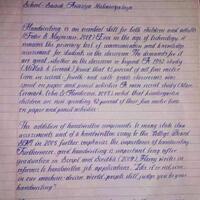 School Based
Handwriting is an essential skill for both children and adults
(Feder & Majnemer, 2007). Even in the age of technology, it
remains the primary tool of communication and knowledge
assessment for students in the classroom. The demands for it
are great, whether in the classroom or beyond. A 1992 study
(McHale & Cermak) found that 85 percent of all fine motor
time in second-, fourth- and sixth-grade classrooms was
spent on paper and pencil activities. A more recent study (Marr,
Cermak, Cohn & Henderson, 2003) noted that kindergarten
children are now spending 42 percent of their fine motor time
on paper and pencil activities.
The addition of handwritten components to many state
assessments and of a handwritten essay to the College Board
SAT in 2005 further emphasize the importance of handwriting.
Furthermore, good handwriting is important long after
graduation. In Script and Scribble (2009), Florey writes in
reference to handwritten job applications, "Like it or not, even
in our machine-driven world, people still judge you by your
handwriting".